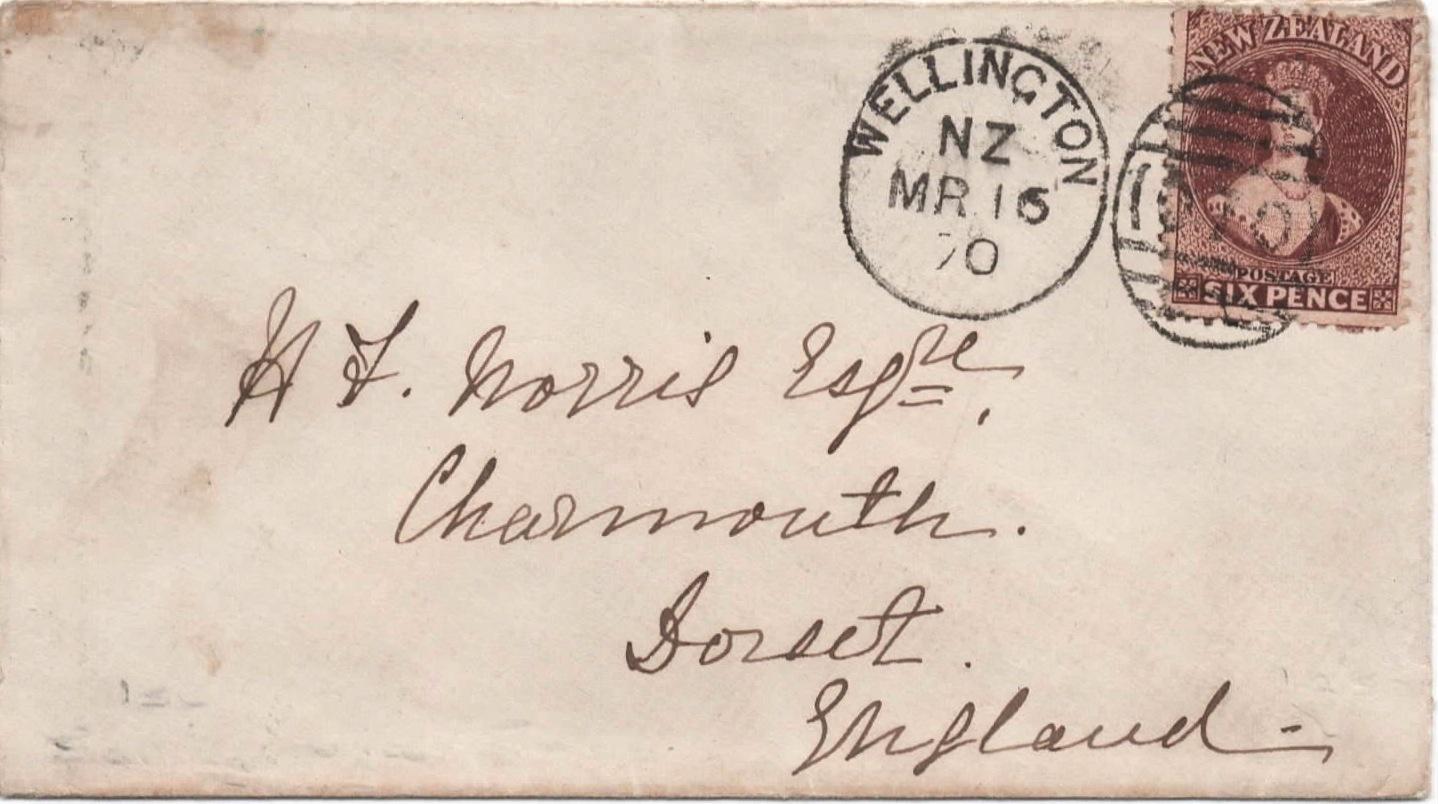 NEW ZEALAND
WELLINGTON
NZ
MR 16
70
POSTAGE
SIX PENCE
H F. Norris Esqre,
Charmouth.
Dorset.
England-